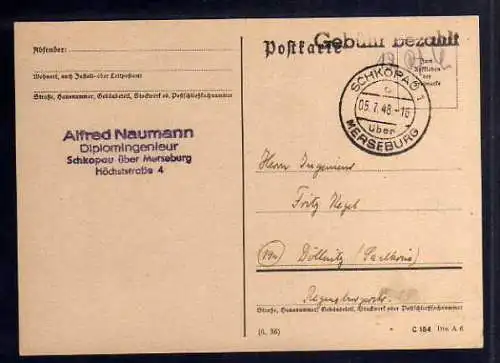 Absender:
Wohnort, auch Zustell- oder Leitpostamt
Straße, Hausnummer, Gebäudeteil, Stockwerk od. Postschließfachnummer
Alfred Naumann
Diplomingenieur
Schkopau über Merseburg
Höchststraße 4
Postkarte
Gebühr bezahlt
Zum
Aufkleben
der
SCHKOPAU 1
c
05.7.48.-16
über
MERSEBURG
Herrn Ingenieur
Fritz Hegel
Döllnitz (Saalkreis)
Straße, Hausnummer, Gebäudeteil, Stockwerk oder Postschließfachnummer
(6. 36)
C 154 Din A 6